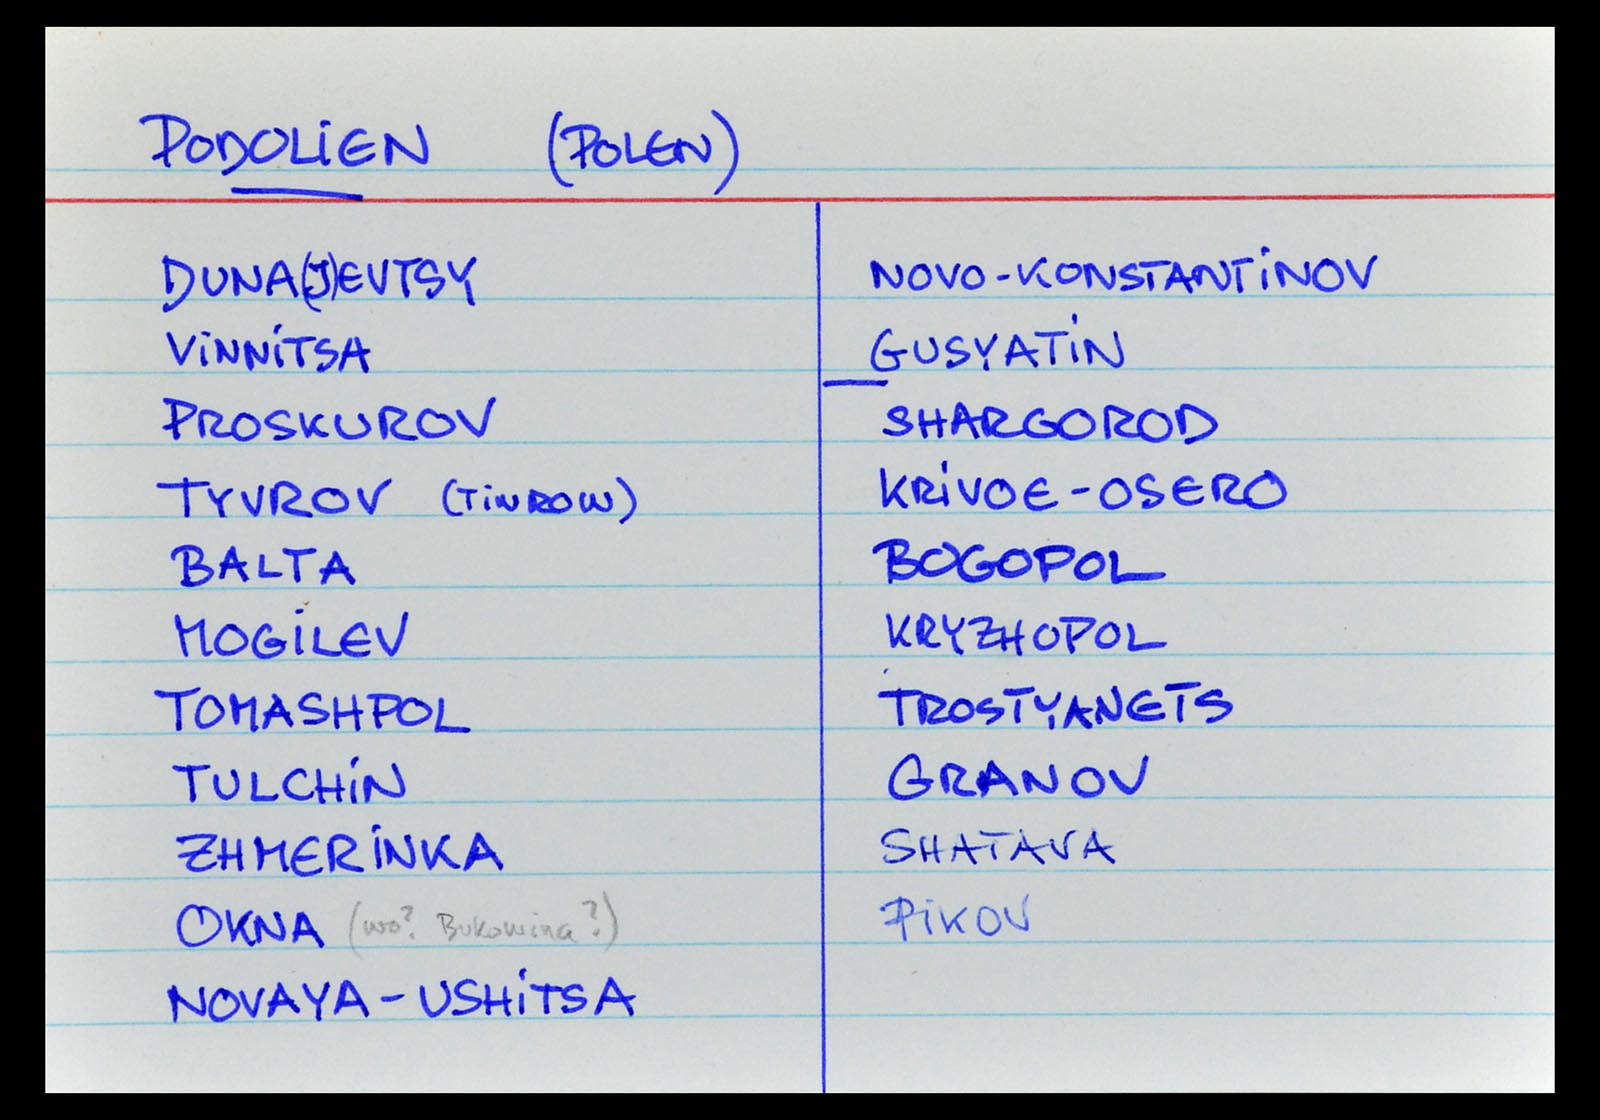 PODOLiEN (POLEN)
DUNA(J)EVTSY
ViNNiTSA
PROSKUROV
TYVROV (TiWROW)
BALTA
MOGiLEV
TOMASHPOL
TULCHiN
ZHMERiNKA
OKNA (wo? Bukowina?)
NOVAYA-USHiTSA
NOVO-KONSTANTiNOV
GUSYATiN
SHARGOROD
KRiVOE-OSERO
BOGOPOL
KRYZHOPOL
TROSTYANETS
GRANOV
SHATAVA
PiKOV